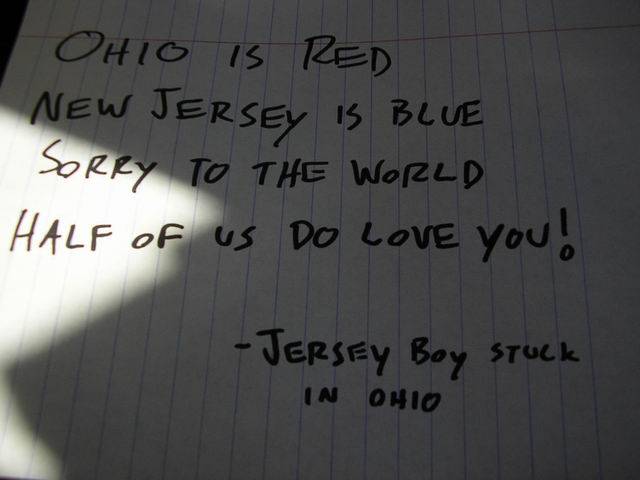 OHIO IS RED
NEW JERSEY IS BLUE
SORRY TO THE WORLD
HALF OF US DO LOVE YOU!
- JERSEY BOY STUCK
IN OHIO